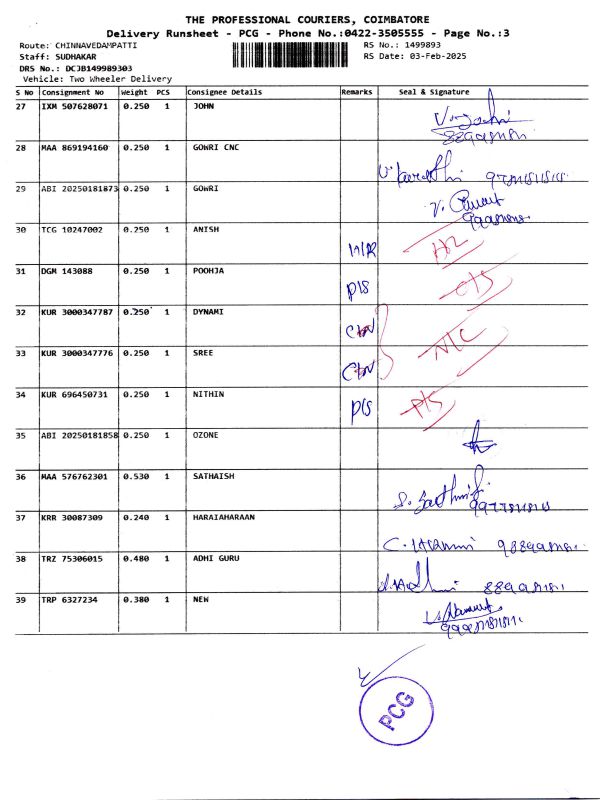 THE PROFESSIONAL COURIERS, COIMBATORE
Delivery Runsheet - PCG - Phone No.:0422-3505555 - Page No.:3
Route: CHINNAVEDAMPATTI RS No.: 1499893
Staff: SUDHAKAR RS Date: 03-Feb-2025
DRS No.: DCJB149989303
Vehicle: Two Wheeler Delivery
S No Consignment No Weight PCS Consignee Details Remarks Seal & Signature
27 IXM 507628071 0.250 1 JOHN
28 MAA 869194160 0.250 1 GOWRI CNC
29 ABI 20250181873 0.250 1 GOWRI
30 TCG 10247002 0.250 1 ANISH
31 DGM 143088 0.250 1 POOHJA P/S
32 KUR 3000347787 0.250 1 DYNAMI
33 KUR 3000347776 0.250 1 SREE N/C
34 KUR 696450731 0.250 1 NITHIN P/S P/S
35 ABI 20250181858 0.250 1 OZONE
36 MAA 576762301 0.530 1 SATHAISH
37 KRR 30087309 0.240 1 HARAIAHARAAN
38 TRZ 75306015 0.480 1 ADHI GURU
39 TRP 6327234 0.380 1 NEW
PCG